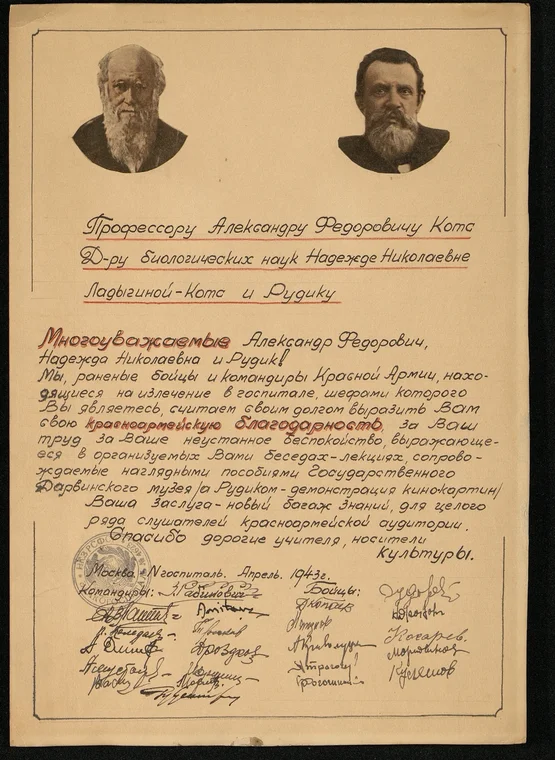 Профессору Александру Федоровичу Котс
Д-ру биологических наук Надежде Николаевне
Ладыгиной-Котс и Рудику
Многоуважаемые Александр Федорович,
Надежда Николаевна и Рудик!
Мы, раненые бойцы и командиры Красной Армии, нахо-
дящиеся на излечение в госпитале, шефами которого
Вы являетесь, считаем своим долгом выразить Вам
свою красноармейскую благодарность, за Ваш
труд за Ваше неустанное беспокойство, выражающе-
еся в организуемых Вами беседах-лекциях, сопрово-
ждаемые наглядными пособиями Государственного
Дарвинского музея /а Рудиком-демонстрация кинокартин/
Ваша заслуга-новый багаж знаний, для целого
ряда слушателей красноармейской аудитории.
Спасибо дорогие учителя, носители
культуры.
Москва. N госпиталь. Апрель. 1943г.
Командиры: Бойцы:
Дроздов Косарев.
Кузнецов